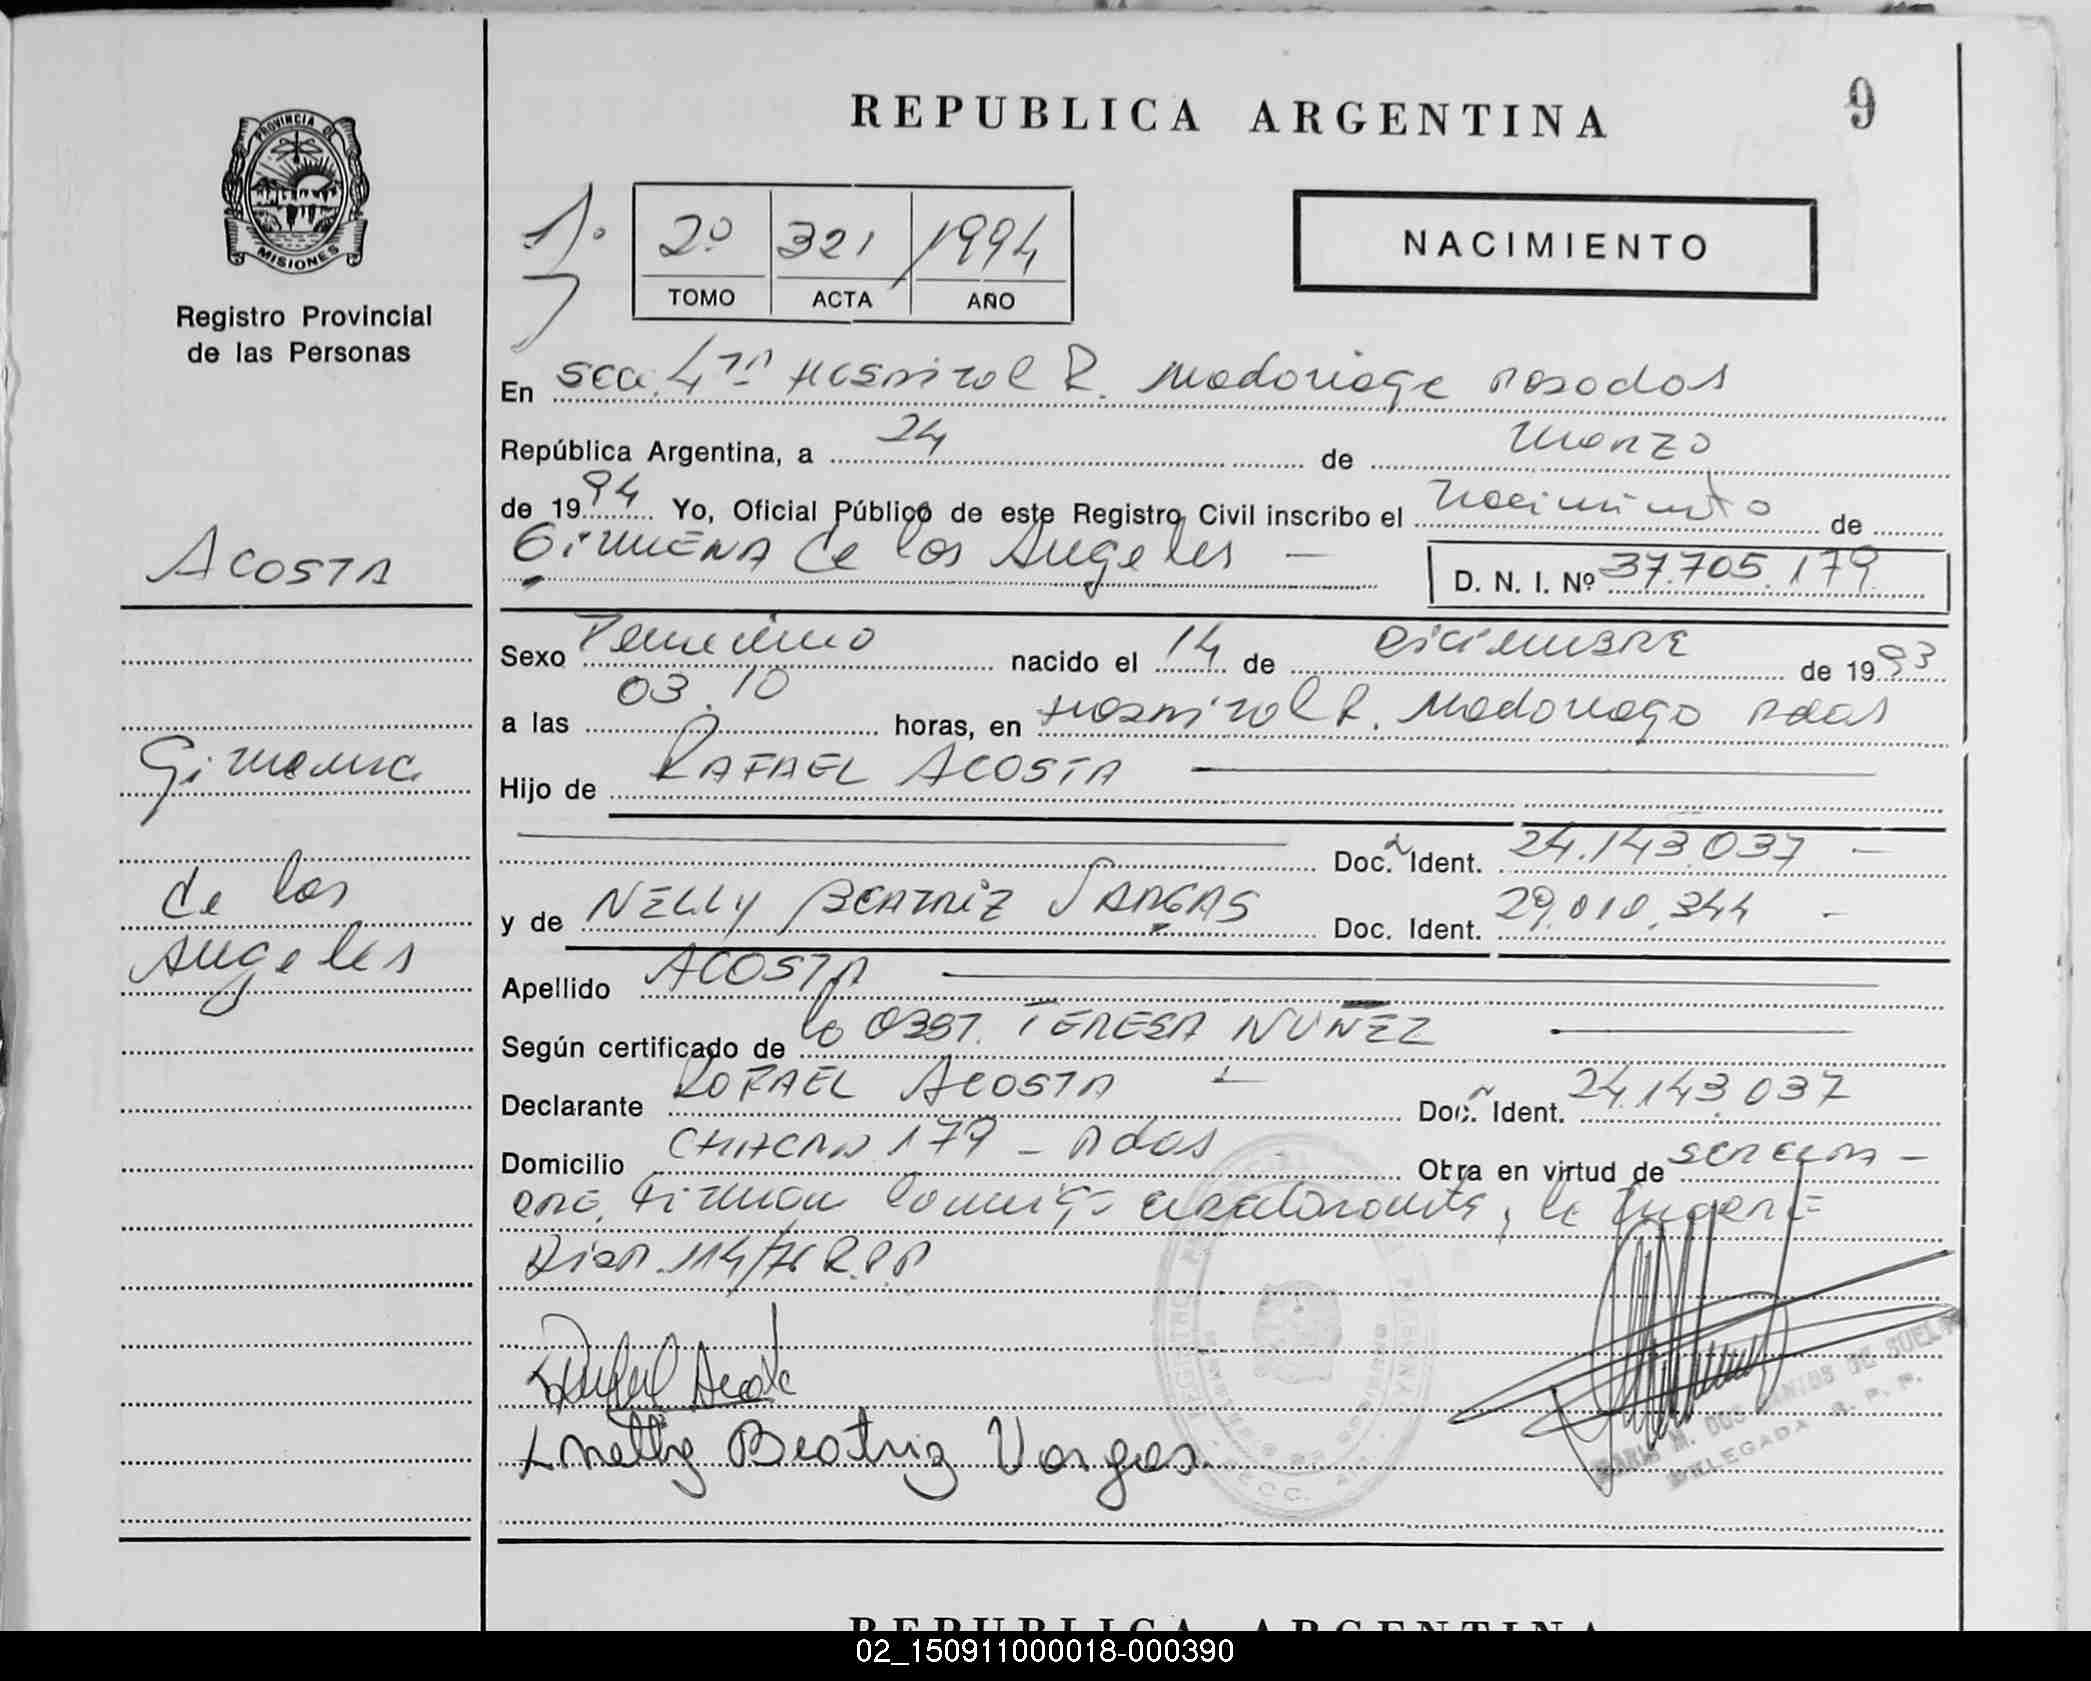 REPUBLICA ARGENTINA
9
PROVINCIA DE
MISIONES
Registro Provincial
de las Personas
1º
2º 321 1994
TOMO ACTA AÑO
NACIMIENTO
En Sec. 4ta Hospital R. Madariaga Posadas
República Argentina, a 24 de Marzo
de 1994 Yo, Oficial Público de este Registro Civil inscribo el nacimiento de
GimENA de los Angeles —
D. N. I. Nº 37.705.179
ACOSTA
Gimena
de los
Angeles
Sexo Femenino nacido el 14 de Diciembre de 1993
a las 03.10 horas, en Hospital R. Madariaga Pdas
Hijo de RAFAEL ACOSTA
Doc. Ident. 24.143.037 —
y de NELLY BEATRIZ VARGAS Doc. Ident. 29.010.344 —
Apellido ACOSTA
Según certificado de la OBST. TERESA NUÑEZ
Declarante RAFAEL ACOSTA — Doc. Ident. 24.143.037
Domicilio 179 - Pdas Obra en virtud de ser el pa-
dre, Firman conmigo el declarante, la madre
Disp. 114/76 R.P.P
Rafael Acosta
Nelly Beatriz Vargas
DOS SANTOS DE
DELEGADA R. P. P.
REPUBLICA ARGENTINA
02_150911000018-000390